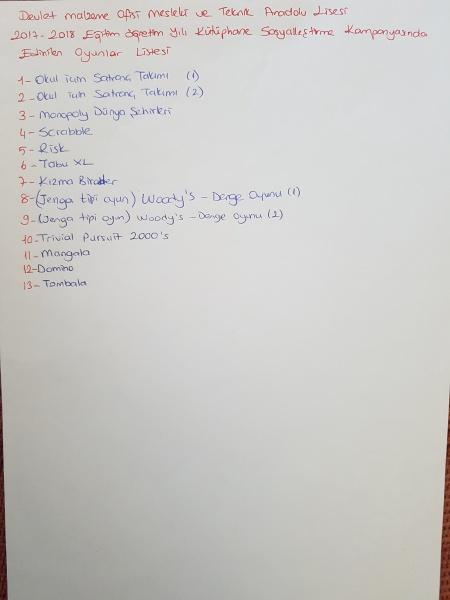 Devlet malzeme ofisi mesleki ve Teknik Anadolu Lisesi
2017-2018 Eğitim öğretim Yılı Kütüphane Sosyalleştirme Kampanyasında
Edinilen Oyunlar Listesi
1- Okul için Satranç Takımı (1)
2- Okul için Satranç Takımı (2)
3- Monopoly Dünya Şehirleri
4- Scrabble
5- Risk
6- Tabu XL
7- Kızma Birader
8- (Jenga tipi oyun) Woody's - Denge Oyunu (1)
9- (Jenga tipi oyun) Woody's - Denge oyunu (2)
10- Trivial Pursuit 2000's
11- Mangala
12- Domino
13- Tombala